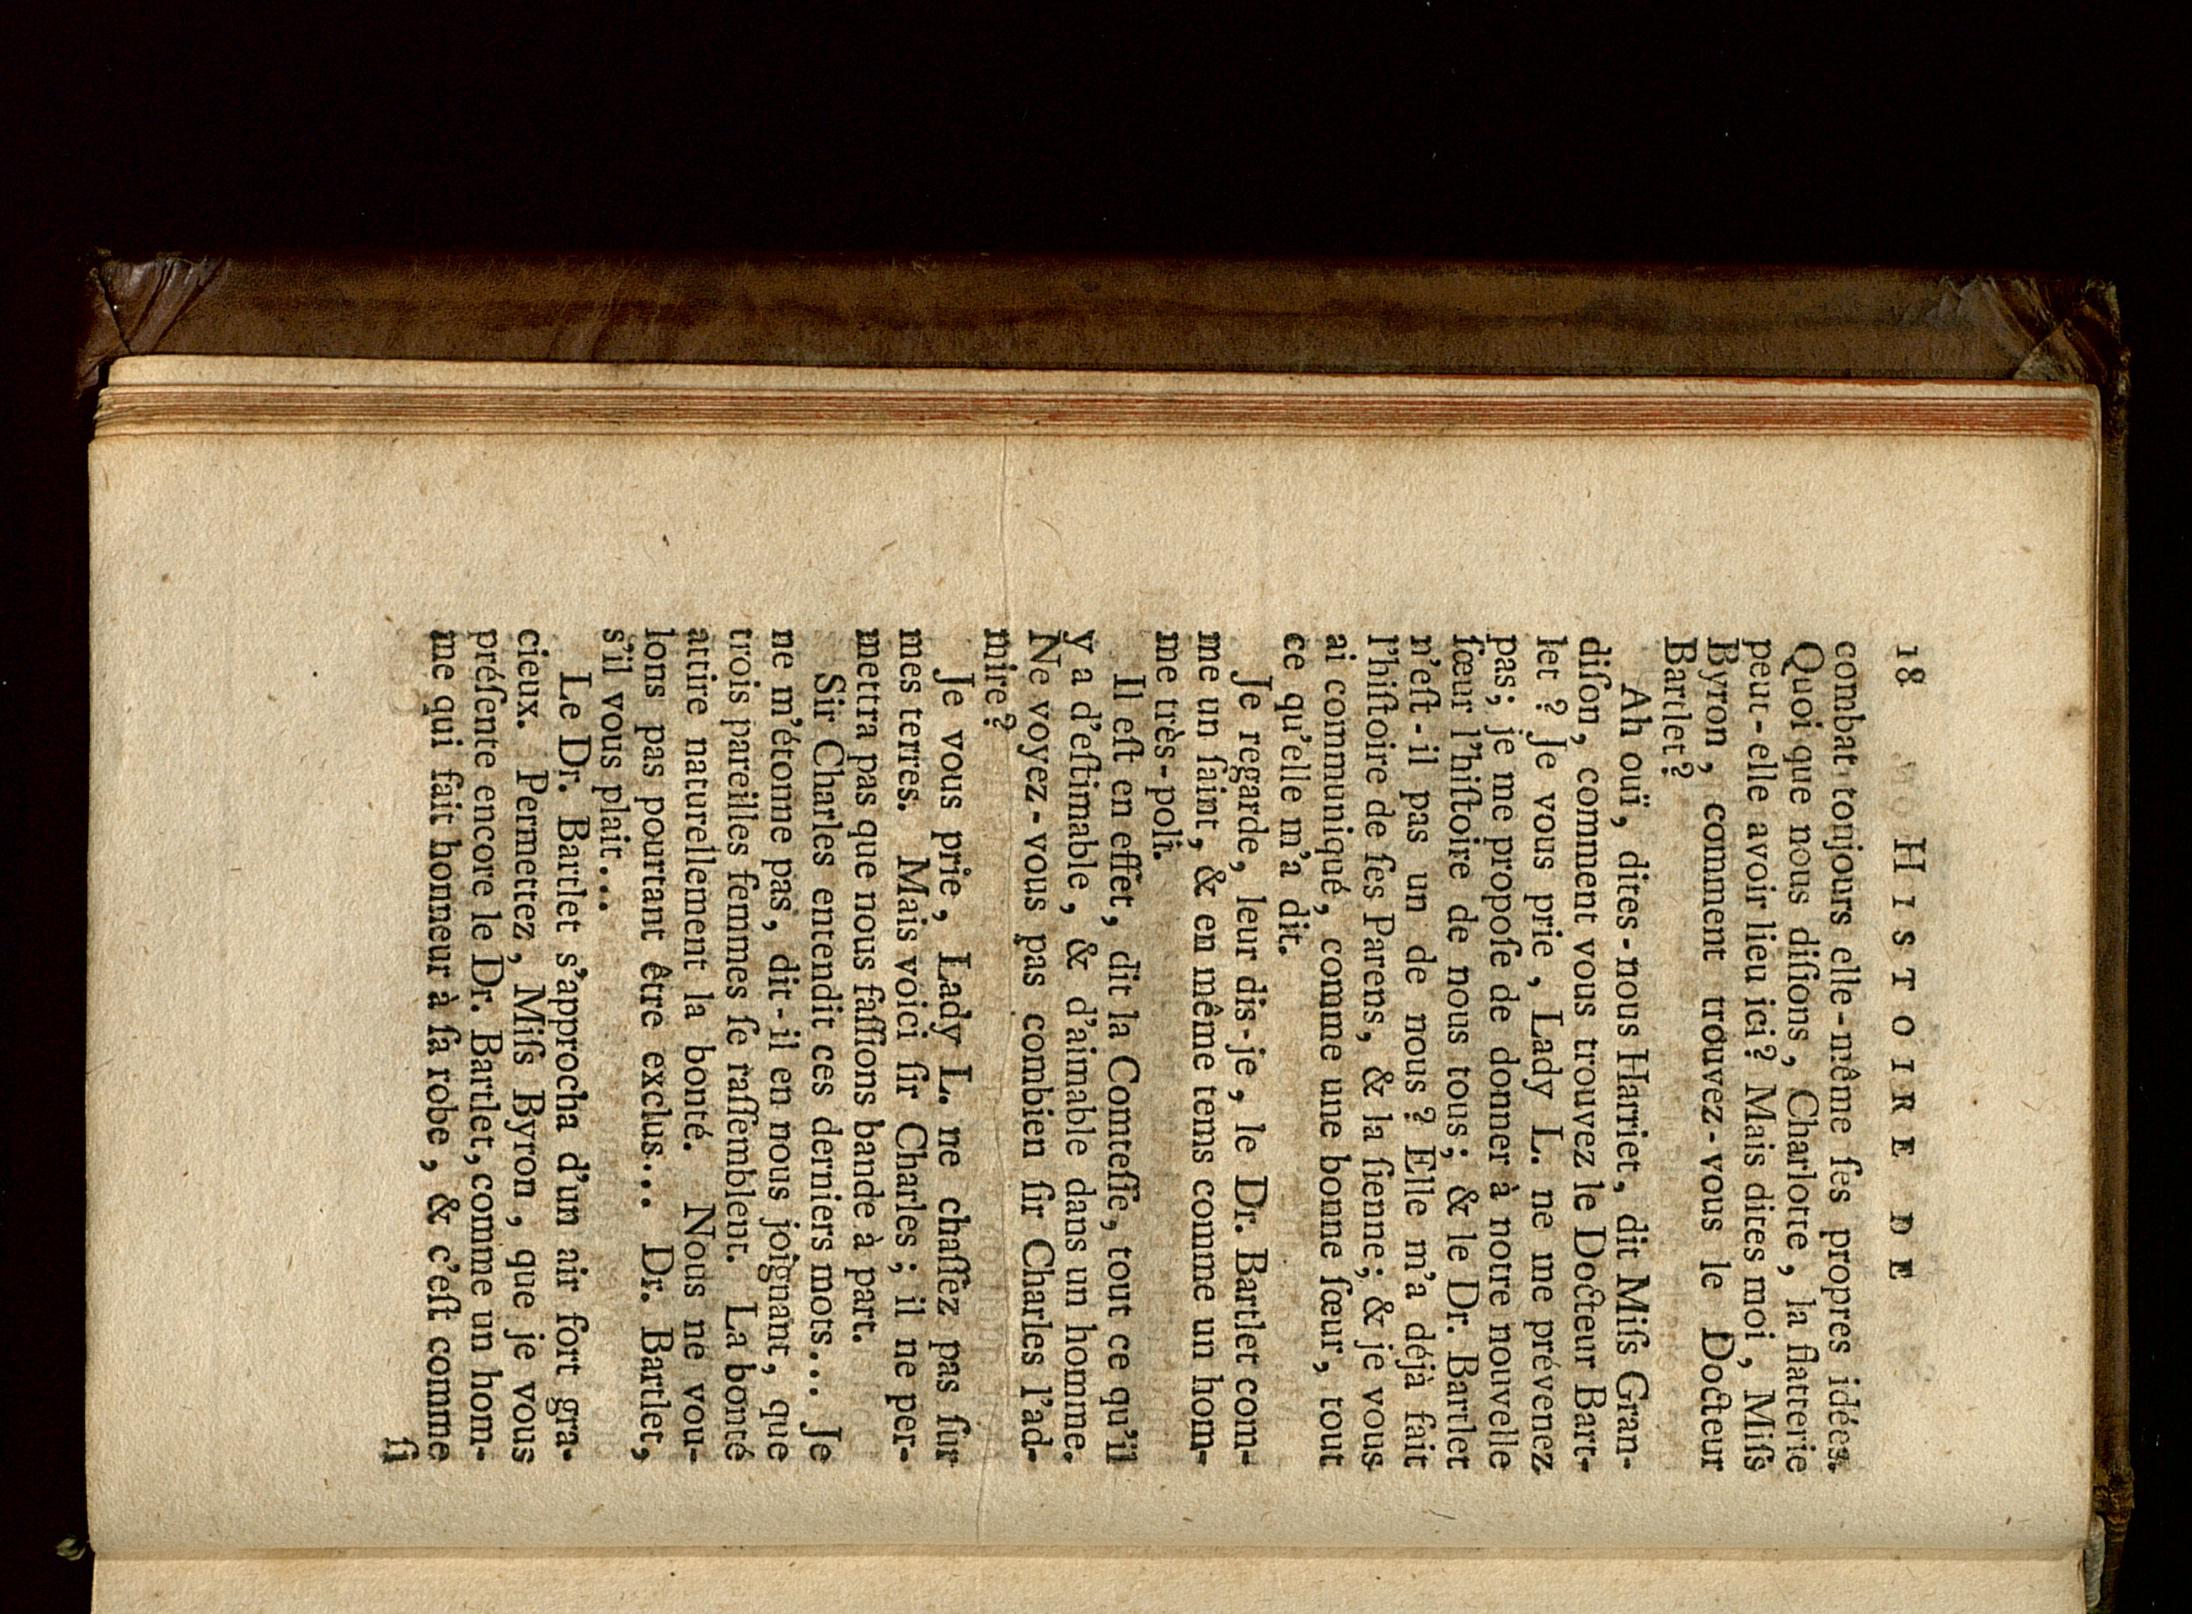 18 HISTOIRE DE
combat toujours elle-même ſes propres idées.
Quoi que nous diſions, Charlotte, la flatterie
peut-elle avoir lieu ici? Mais dites moi, Miſs
Byron, comment trouvez-vous le Docteur
Bartlet?
Ah ouï, dites-nous Harriet, dit Miſs Gran-
diſon, comment vous trouvez le Docteur Bart-
let? Je vous prie, Lady L. ne me prévenez
pas; je me propoſe de donner à notre nouvelle
ſœur l'hiſtoire de nous tous; & le Dr. Bartlet
n'eſt-il pas un de nous? Elle m'a déjà fait
l'hiſtoire de ſes Parens, & la ſienne; & je vous
ai communiqué, comme une bonne ſœur, tout
ce qu'elle m'a dit.
Je regarde, leur dis-je, le Dr. Bartlet com-
me un ſaint, & en même tems comme un hom-
me très-poli.
Il eſt en effet, dit la Comteſſe, tout ce qu'il
y a d'eſtimable, & d'aimable dans un homme.
Ne voyez-vous pas combien ſir Charles l'ad-
mire?
Je vous prie, Lady L. ne chaſſez pas ſur
mes terres. Mais voici ſir Charles; il ne per-
mettra pas que nous faſſions bande à part.
Sir Charles entendit ces derniers mots... Je
ne m'étonne pas, dit-il en nous joignant, que
trois pareilles femmes ſe raſſemblent. La bonté
attire naturellement la bonté. Nous ne vou-
lons pas pourtant être exclus... Dr. Bartlet,
s'il vous plait...
Le Dr. Bartlet s'approcha d'un air fort gra-
cieux. Permettez, Miſs Byron, que je vous
préſente encore le Dr. Bartlet, comme un hom-
me qui fait honneur à ſa robe, & c'eſt comme
ſi